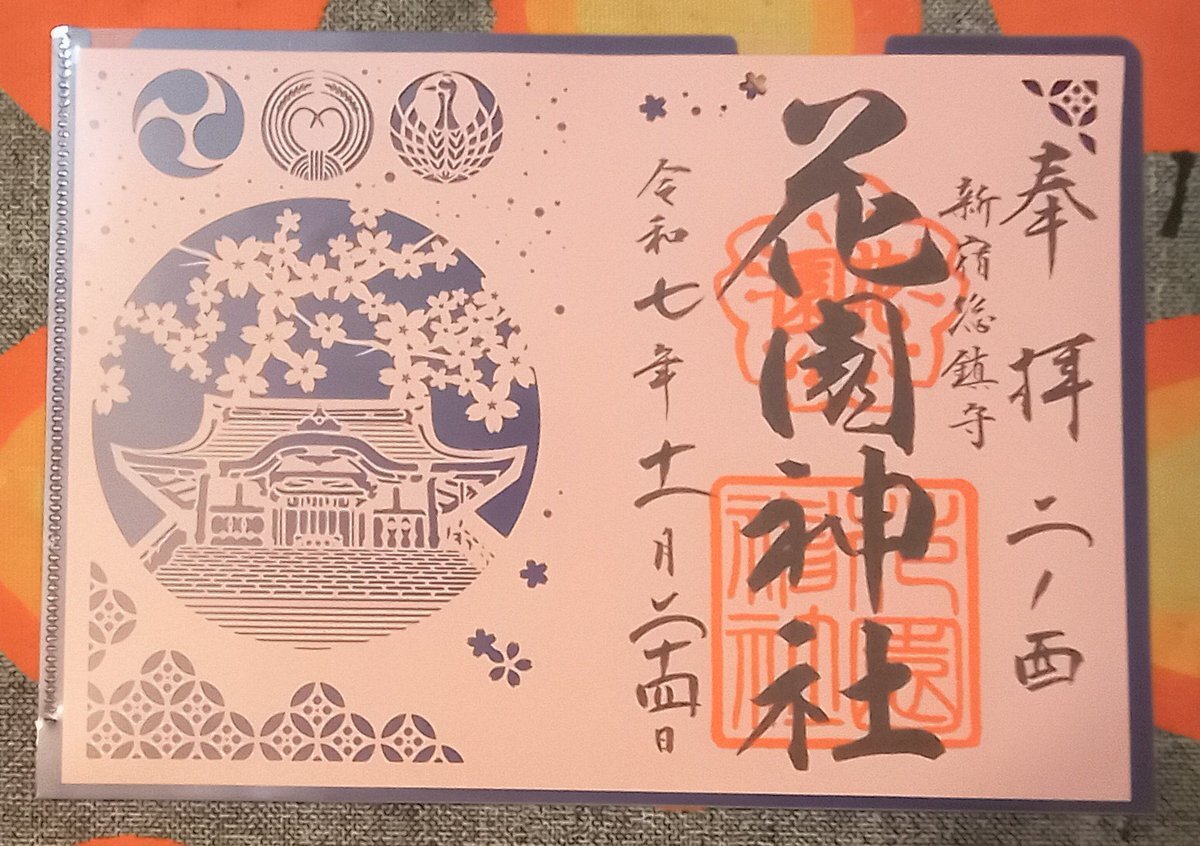 奉拝 二ノ酉
新宿総鎮守
花園神社
令和七年十一月二十四日
花園
花園神社